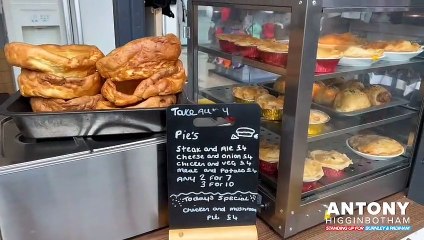 Take away
Pie's
Steak and Ale £4
Cheese and Onion £4
Chicken and Veg £4
Meat and Potato £4
Any 2 for 7
3 for 10
Today's Special
Chicken and mushroom
Pie £4
ANTONY
HIGGINBOTHAM
STANDING UP FOR BURNLEY & PADIHAM